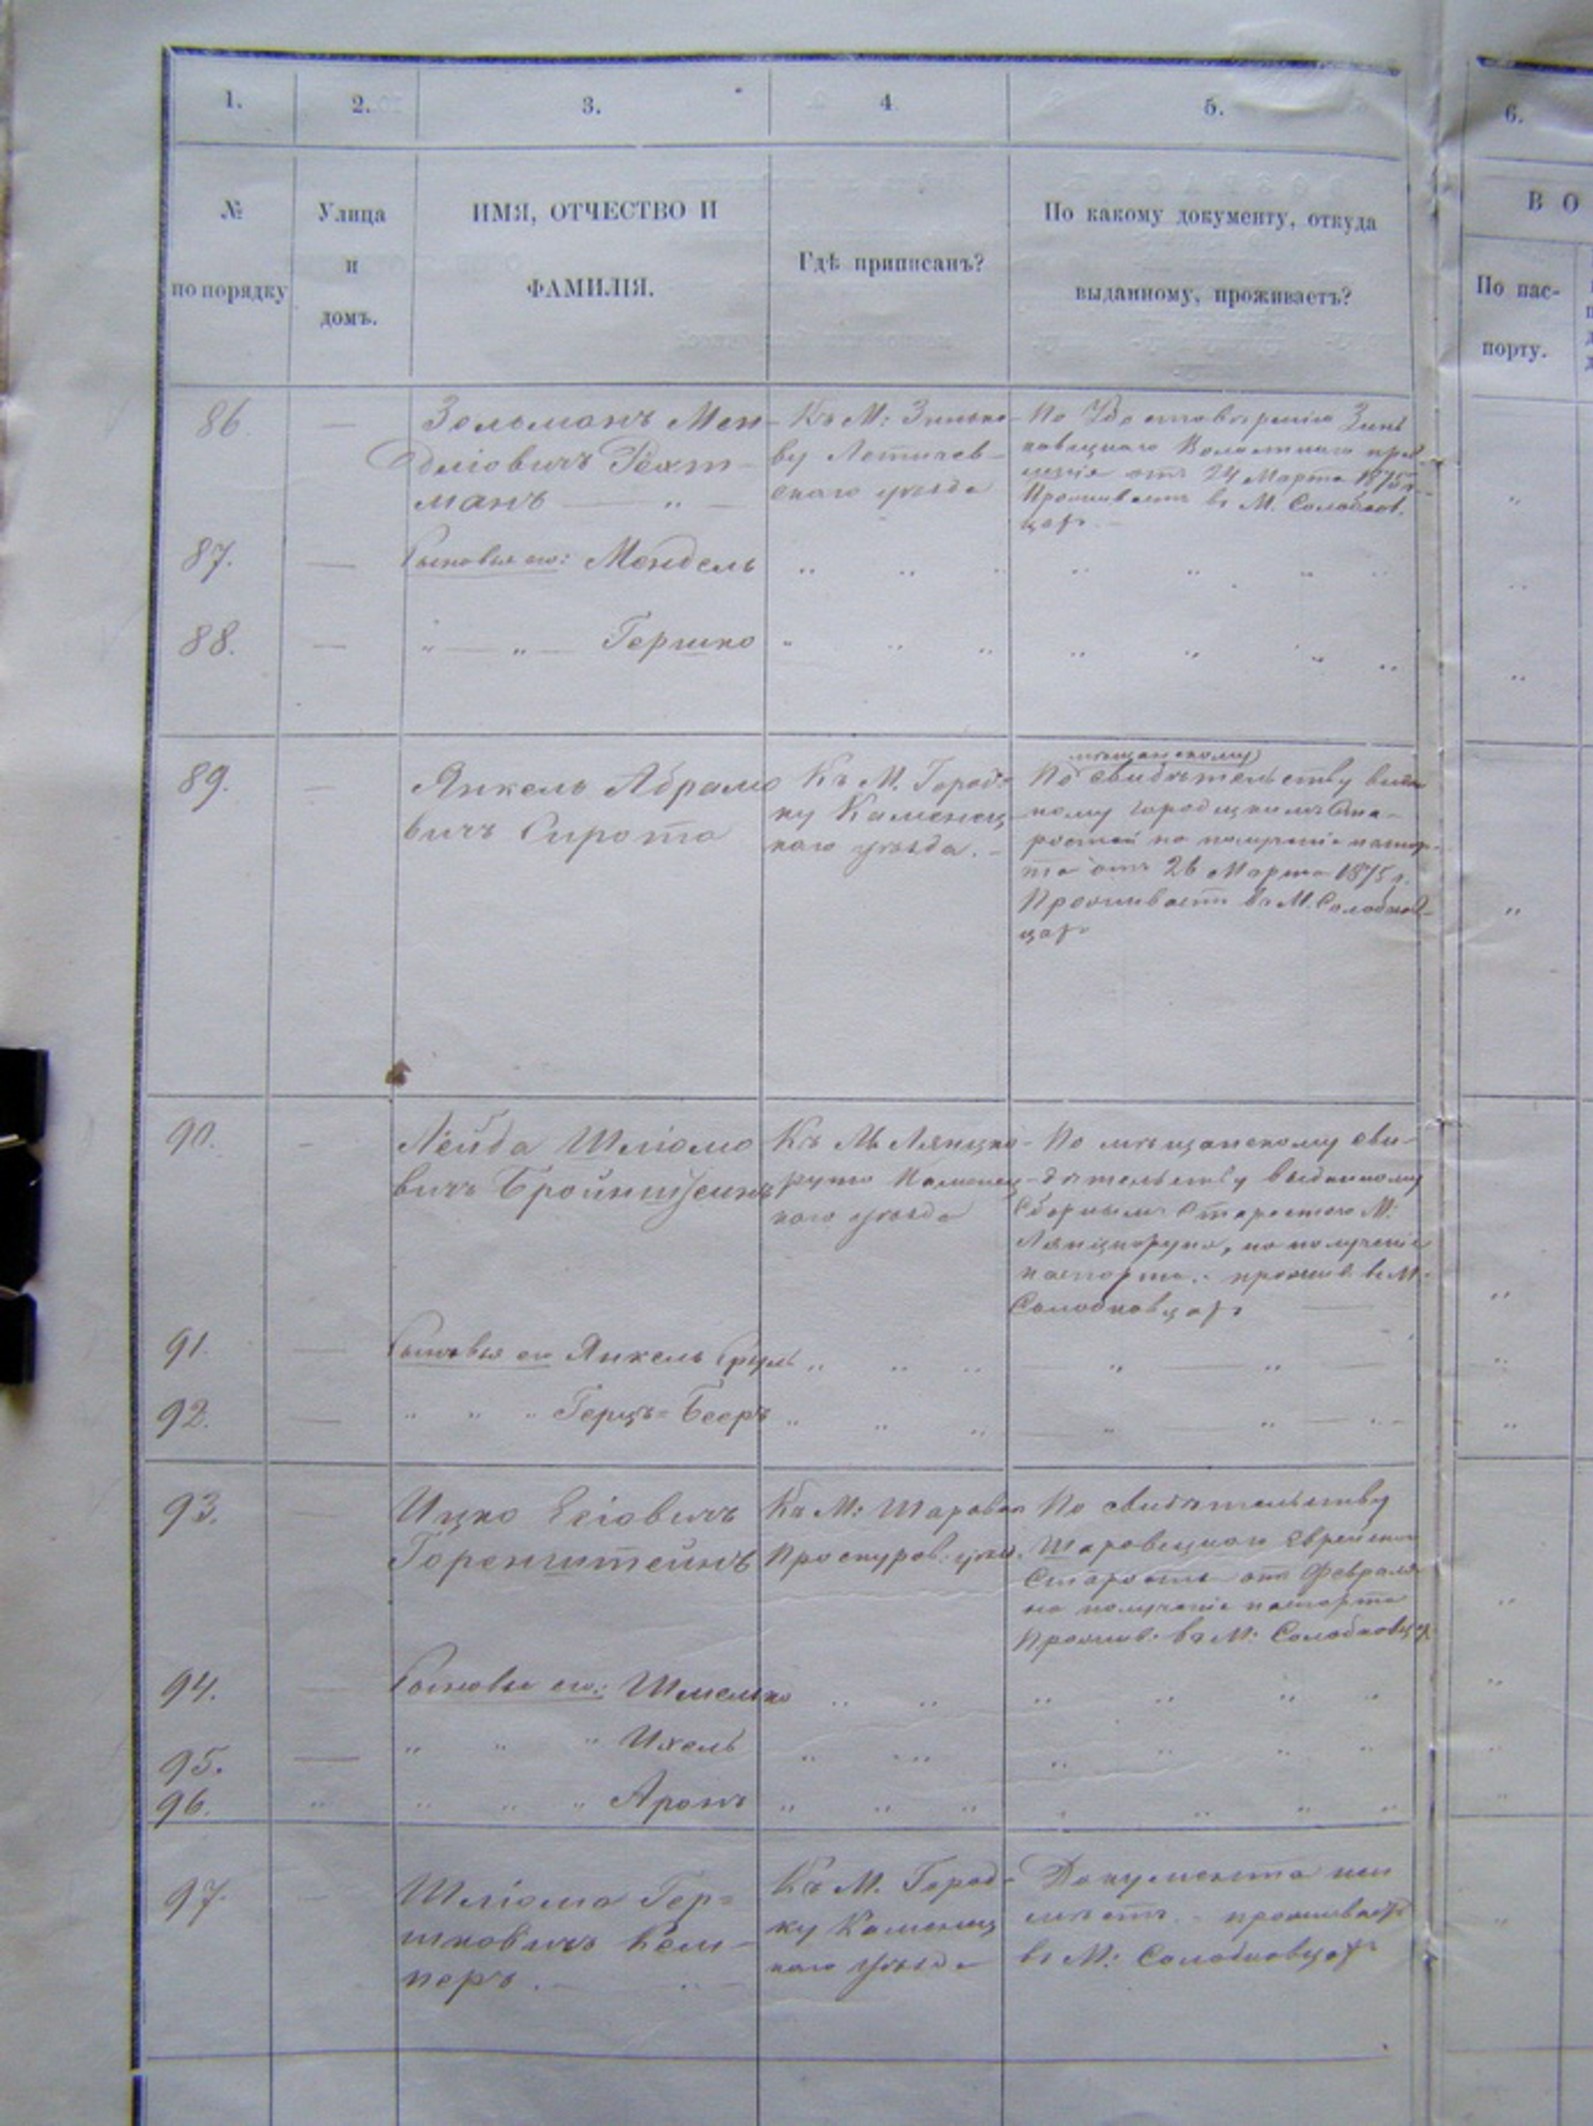 1. 2. 3. 4 5. 6.
№ по порядку
Улица и домъ.
ИМЯ, ОТЧЕСТВО И ФАМИЛІЯ.
Гдѣ приписанъ?
По какому документу, откуда выданному, проживаетъ?
В О
По пас-
порту.
86 — Зельманъ Мен-
дліовичъ
манъ — " —
Къ М: Зинько
ву Летичев-
скаго уѣзда
По Удостовѣренію Зинь
ковецкаго Волостнаго прав
ленія отъ 24 Марта 1875 г.
Проживаетъ въ М. Солобков.
цахъ. —
87. — Сыновья его: Мендель " " "
88. — " — " — Гершко " " "
89. — Янкель Абрамо
вичъ Сирота
Къ М. Город-
ку Каменец
каго уѣзда. —
мѣщанскому
По свидѣтельству выдан
ному Городецкимъ Ста-
ростой на полученіе паспор-
та отъ 26 Марта 1875 г.
Проживаетъ въ М. Солобков-
цахъ
90. — Лейба Шліомо
вичъ Бройнштейнъ
Къ М. Лянцко
руно Каменец
каго уѣзда
По мѣщанскому сви-
дѣтельству выданному
Сборнымъ Старостою М.
Лянцкоруна, на полученіе
паспорта. - прожив. въ М.
Солобковцахъ —
91. — Сыновья его Янкель Сруль " " "
92. — " " " Герцъ-Бееръ " " "
93. Ицко Есіовичъ
Горенштейнъ
Къ М: Шаровка
Проскуров. уѣзд.
По свидѣтельству
Шаровецкаго Еврейскаго
Старосты отъ Февраля
на полученіе паспорта
Прожив. въ М: Солобковцах
94. — Сыновья его: Шмелько " "
95. — " " " Ихель " "
96. " " " " Аронъ " " "
97. — Шліома Гер-
шковичъ Кем-
перъ. —
Къ М. Город-
ку Каменец
каго уѣзда
Документа не и
мѣетъ. - проживаетъ
въ М: Солобковцахъ